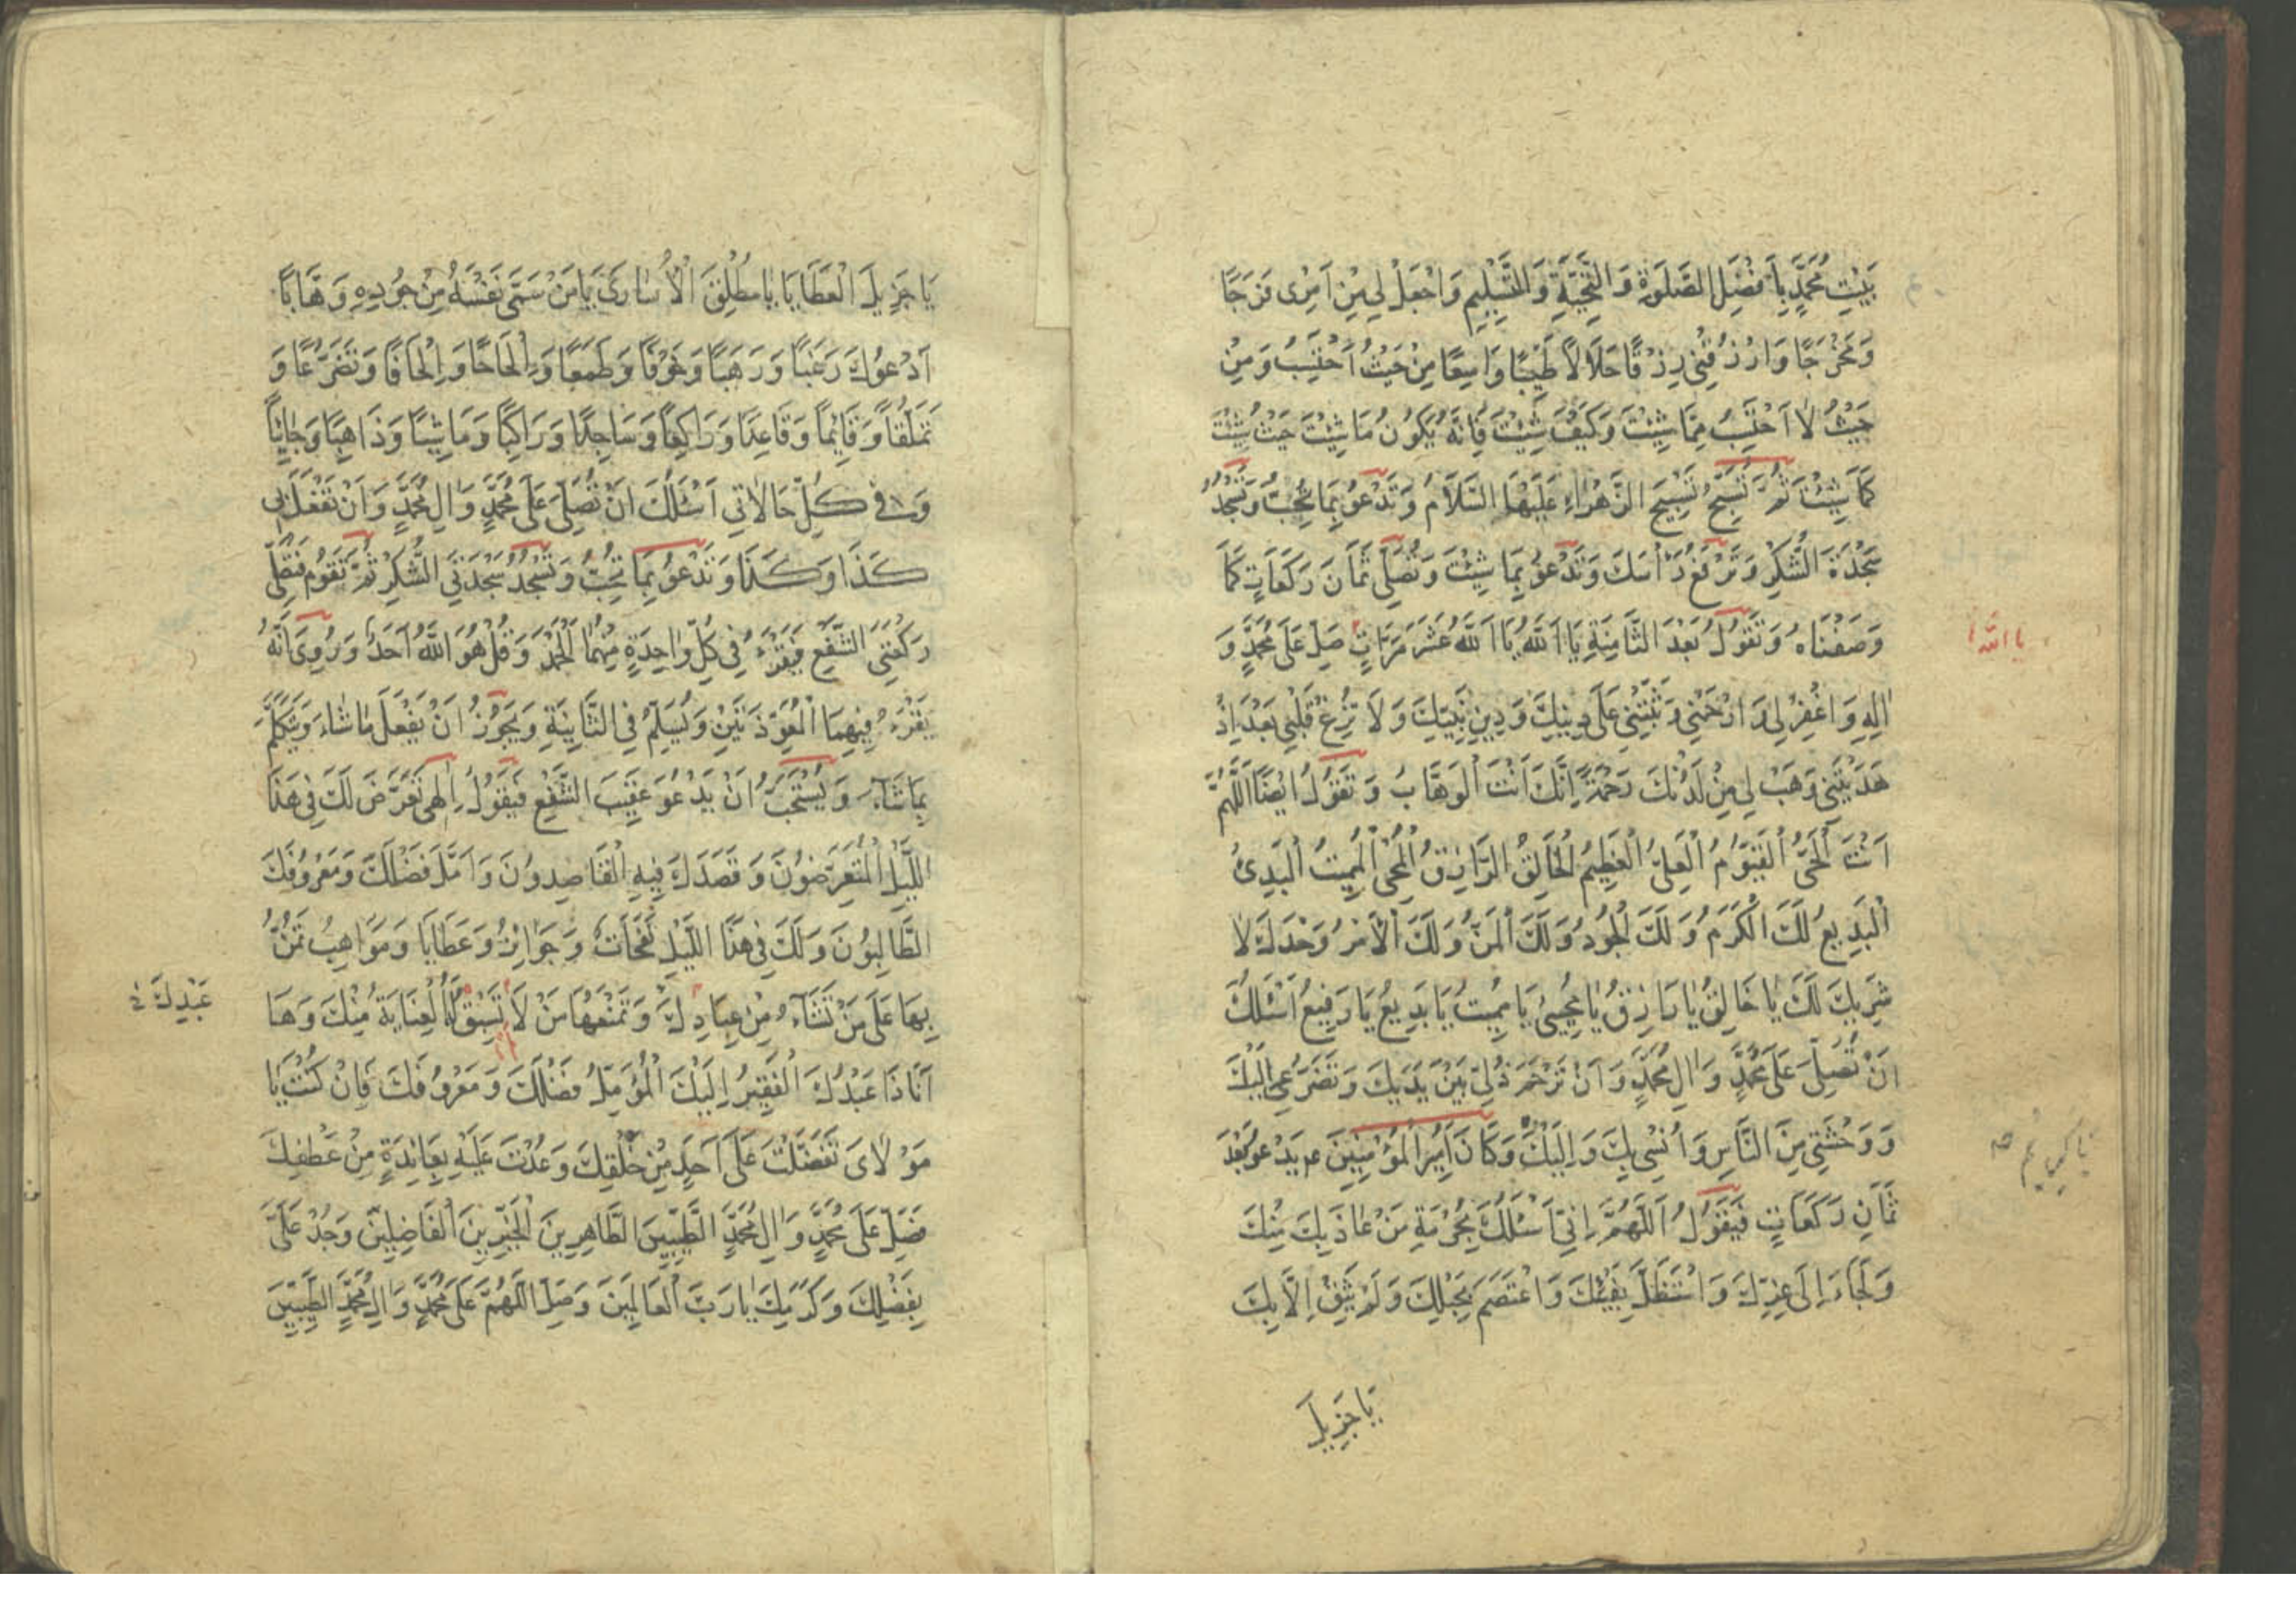 بَيْتِ مُحَمَّدٍ بِأَفْضَلِ الصَّلَوٰةِ وَ التَّحِيَّةِ وَ التَّسْلِيمِ وَاجْعَلْ لِي مِنْ اَمْرِى فَرَجًا
وَ مَخْرَجًا وَ ارْزُقْنِى رِزْقًا حَلَالًا طَيِّبًا وَاسِعًا مِنْ حَيْثُ اَحْتَسِبُ وَ مِنْ
حَيْثُ لَا اَحْتَسِبُ مِمَّا شِئْتَ وَ كَيْفَ شِئْتَ فَاِنَّهُ يَكُونُ مَا شِئْتَ حَيْثُ شِئْتَ
كَمَا شِئْتَ ثُمَّ تُسَبِّحُ تَسْبِيحَ الزَّهْرَاءِ عَلَيْهَا السَّلَامُ وَ تَدْعُو بِمَا تُحِبُّ وَ تَسْجُدُ
سَجْدَةَ الشُّكْرِ وَ تَرْفَعُ رَأْسَكَ وَ تَدْعُو بِمَا شِئْتَ وَ تُصَلِّى ثَمَانَ رَكَعَاتٍ كَمَا
وَصَفْنَاهُ وَ تَقُولُ بَعْدَ الثَّامِنَةِ يَا اَللّٰهُ يَا اَللّٰهُ عَشَرَ مَرَّاتٍ صَلِّ عَلَى مُحَمَّدٍ وَ
يا اللّٰه
اٰلِهِ وَ اغْفِرْ لِى وَ ارْحَمْنِى وَ ثَبِّتْنِى عَلَى دِينِكَ وَ دِينِ نَبِيِّكَ وَ لَا تُزِغْ قَلْبِى بَعْدَ اِذْ
هَدَيْتَنِى وَ هَبْ لِى مِنْ لَدُنْكَ رَحْمَةً اِنَّكَ اَنْتَ الْوَهَّابُ وَ تَقُولُ اَيْضًا اَللّٰهُمَّ
اَنْتَ الْحَىُّ الْقَيُّومُ الْعَلِىُّ الْعَظِيمُ الْخَالِقُ الرَّازِقُ الْمُحْيِى الْمُمِيتُ الْبَدِىءُ
الْبَدِيعُ لَكَ الْكَرَمُ وَ لَكَ الْجُودُ وَ لَكَ الْمَنُّ وَ لَكَ الْاَمْرُ وَحْدَكَ لَا
شَرِيكَ لَكَ يَا خَالِقُ يَا رَازِقُ يَا مُحْيِى يَا مُمِيتُ يَا بَدِيعُ يَا رَفِيعُ اَسْئَلُكَ
اَنْ تُصَلِّىَ عَلَى مُحَمَّدٍ وَ اٰلِ مُحَمَّدٍ وَ اَنْ تَرْحَمَ ذُلِّى بَيْنَ يَدَيْكَ وَ تَضَرُّعِى اِلَيْكَ
وَ وَحْشَتِى مِنَ النَّاسِ وَ اُنْسِى بِكَ وَ اِلَيْكَ وَ كَانَ اَمِيرُ الْمُؤْمِنِينَ عم يَدْعُو بَعْدَ
ثَمَانِ رَكَعَاتٍ فَيَقُولُ اَللّٰهُمَّ اِنِّى اَسْئَلُكَ بِحُرْمَةِ مَنْ عَاذَ بِكَ مِنْكَ
وَ لَجَاءَ اِلَى عِزِّكَ وَ اسْتَظَلَّ بِفَيْئِكَ وَ اعْتَصَمَ بِحَبْلِكَ وَ لَمْ يَثِقْ اِلَّا بِكَ
يَا جَزِيلَ
يَا جَزِيلَ الْعَطَايَا يَا مُطْلِقَ الْاُسَارَى يَا مَنْ سَمَّى نَفْسَهُ مِنْ جُودِهِ وَهَّابًا
اَدْعُوكَ رَغَبًا وَ رَهَبًا وَ خَوْفًا وَ طَمَعًا وَ اِلْحَاحًا وَ اِلْحَافًا وَ تَضَرُّعًا وَ
تَمَلُّقًا وَ قَائِمًا وَ قَاعِدًا وَ رَاكِعًا وَ سَاجِدًا وَ رَاكِبًا وَ مَاشِيًا وَ ذَاهِبًا وَ جَائِيًا
وَ فِى كُلِّ حَالَاتِى اَسْئَلُكَ اَنْ تُصَلِّىَ عَلَى مُحَمَّدٍ وَ اٰلِ مُحَمَّدٍ وَ اَنْ تَفْعَلَ بِى
كَذَا وَ كَذَا وَ تَدْعُو بِمَا تُحِبُّ وَ تَسْجُدُ سَجْدَتَىِ الشُّكْرِ ثُمَّ تَقُومُ فَتُصَلِّى
رَكْعَتَىِ الشَّفْعِ فَيَقْرَءُ فِى كُلِّ وَاحِدَةٍ مِنْهُمَا الْحَمْدَ وَ قُلْ هُوَ اللّٰهُ اَحَدٌ وَ رُوِىَ اَنَّهُ
يَقْرَءُ فِيهِمَا الْمُعَوِّذَتَيْنِ وَ يُسَلِّمُ فِى الثَّانِيَةِ وَ يَجُوزُ اَنْ يَفْعَلَ مَا شَاءَ وَ يَتَكَلَّمَ
بِمَا شَاءَ وَ يُسْتَحَبُّ اَنْ يَدْعُوَ عَقِيبَ الشَّفْعِ فَيَقُولُ اِلٰهِى تَعَرَّضَ لَكَ فِى هٰذَا
اللَّيْلِ الْمُتَعَرِّضُونَ وَ قَصَدَكَ فِيهِ الْقَاصِدُونَ وَ اَمَّلَ فَضْلَكَ وَ مَعْرُوفَكَ
الطَّالِبُونَ وَ لَكَ فِى هٰذَا اللَّيْلِ نَفَحَاتٌ وَ جَوَائِزُ وَ عَطَايَا وَ مَوَاهِبُ تَمُنُّ
بِهَا عَلَى مَنْ تَشَاءُ مِنْ عِبَادِكَ وَ تَمْنَعُهَا مَنْ لَا تَسْبِقُ لَهُ الْعِنَايَةُ مِنْكَ وَ هَا
عَبْدِكَ
اَنَا ذَا عَبْدُكَ الْفَقِيرُ اِلَيْكَ الْمُؤَمِّلُ فَضْلَكَ وَ مَعْرُوفَكَ فَاِنْ كُنْتَ يَا
مَوْلَاىَ تَفَضَّلْتَ عَلَى اَحَدٍ مِنْ خَلْقِكَ وَ عُدْتَ عَلَيْهِ بِعَائِدَةٍ مِنْ عَطْفِكَ
فَصَلِّ عَلَى مُحَمَّدٍ وَ اٰلِ مُحَمَّدٍ الطَّيِّبِينَ الطَّاهِرِينَ الْخَيِّرِينَ الْفَاضِلِينَ وَ جُدْ عَلَىَّ
بِفَضْلِكَ وَ كَرَمِكَ يَا رَبَّ الْعَالَمِينَ وَ صَلِّ اللّٰهُمَّ عَلَى مُحَمَّدٍ وَ اٰلِ مُحَمَّدٍ الطَّيِّبِينَ